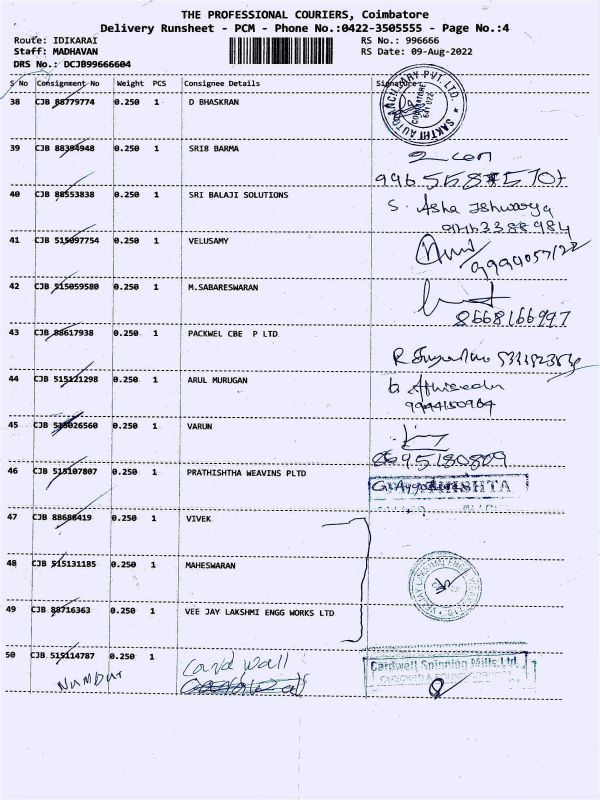 THE PROFESSIONAL COURIERS, Coimbatore
Delivery Runsheet - PCM - Phone No.:0422-3505555 - Page No.:4
Route: IDIKARAI RS No.: 996666
Staff: MADHAVAN RS Date: 09-Aug-2022
DRS No.: DCJB99666604
S No Consignment No Weight PCS Consignee Details Signature
38 CJB 88779774 0.250 1 D BHASKRAN
SAKTHI AUTO ANCILLARY PVT LTD. COIMBATORE 641 022
39 CJB 88394948 0.250 1 SRI8 BARMA
40 CJB 88553838 0.250 1 SRI BALAJI SOLUTIONS
S. Asha Ishwarya
41 CJB 515097754 0.250 1 VELUSAMY
9994057122
42 CJB 515059580 0.250 1 M.SABARESWARAN
8668166997
43 CJB 88617938 0.250 1 PACKWEL CBE P LTD
44 CJB 515121298 0.250 1 ARUL MURUGAN
9944150964
45 CJB 515026560 0.250 1 VARUN
8695180809
46 CJB 515107807 0.250 1 PRATHISHTHA WEAVINS PLTD
47 CJB 88686419 0.250 1 VIVEK
48 CJB 515131185 0.250 1 MAHESWARAN
49 CJB 88716363 0.250 1 VEE JAY LAKSHMI ENGG WORKS LTD
50 CJB 515114787 0.250 1 Card wall
Number
Cardwell Spinning Mills Ltd.,